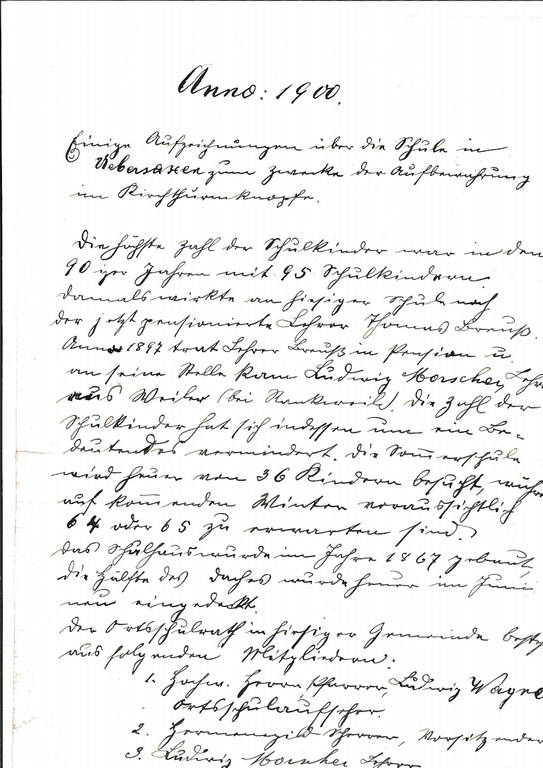 Anno: 1900.
Einige Aufzeichnungen über die Schule in
Uebersaxen zum Zwecke der Aufbewahrung
im Kirchthurmknopfe.
Die höchste Zahl der Schulkinder war in den
90iger Jahren mit 95 Schulkindern.
Damals wirkte an hiesiger Schule noch
der jetzt pensionierte Lehrer Thomas Breuß.
Anno 1897 trat Lehrer Breuß in Pension u.
an seine Stelle kam Ludwig Morscher, Lehr
aus Weiler (bei Rankweil). Die Zahl der
Schulkinder hat sich indessen um ein Be-
deutendes vermindert. Die Sommerschule
wird heuer von 36 Kindern besucht, währe
auf kommenden Winter voraussichtlich
64 oder 65 zu erwarten sind.
Das Schulhaus wurde im Jahre 1867 gebaut,
die Hälfte des Daches wurde heuer im Juni
neu eingedeckt.
Der Ortsschulrath in hiesiger Gemeinde beste
aus folgenden Mitgliedern:
1. Hochw. Herrn Pfarrer, Ludwig Wagne
Ortsschulaufseher.
2. Hermenegild Scherrer, Vorsitzender
3. Ludwig Morscher Lehrer